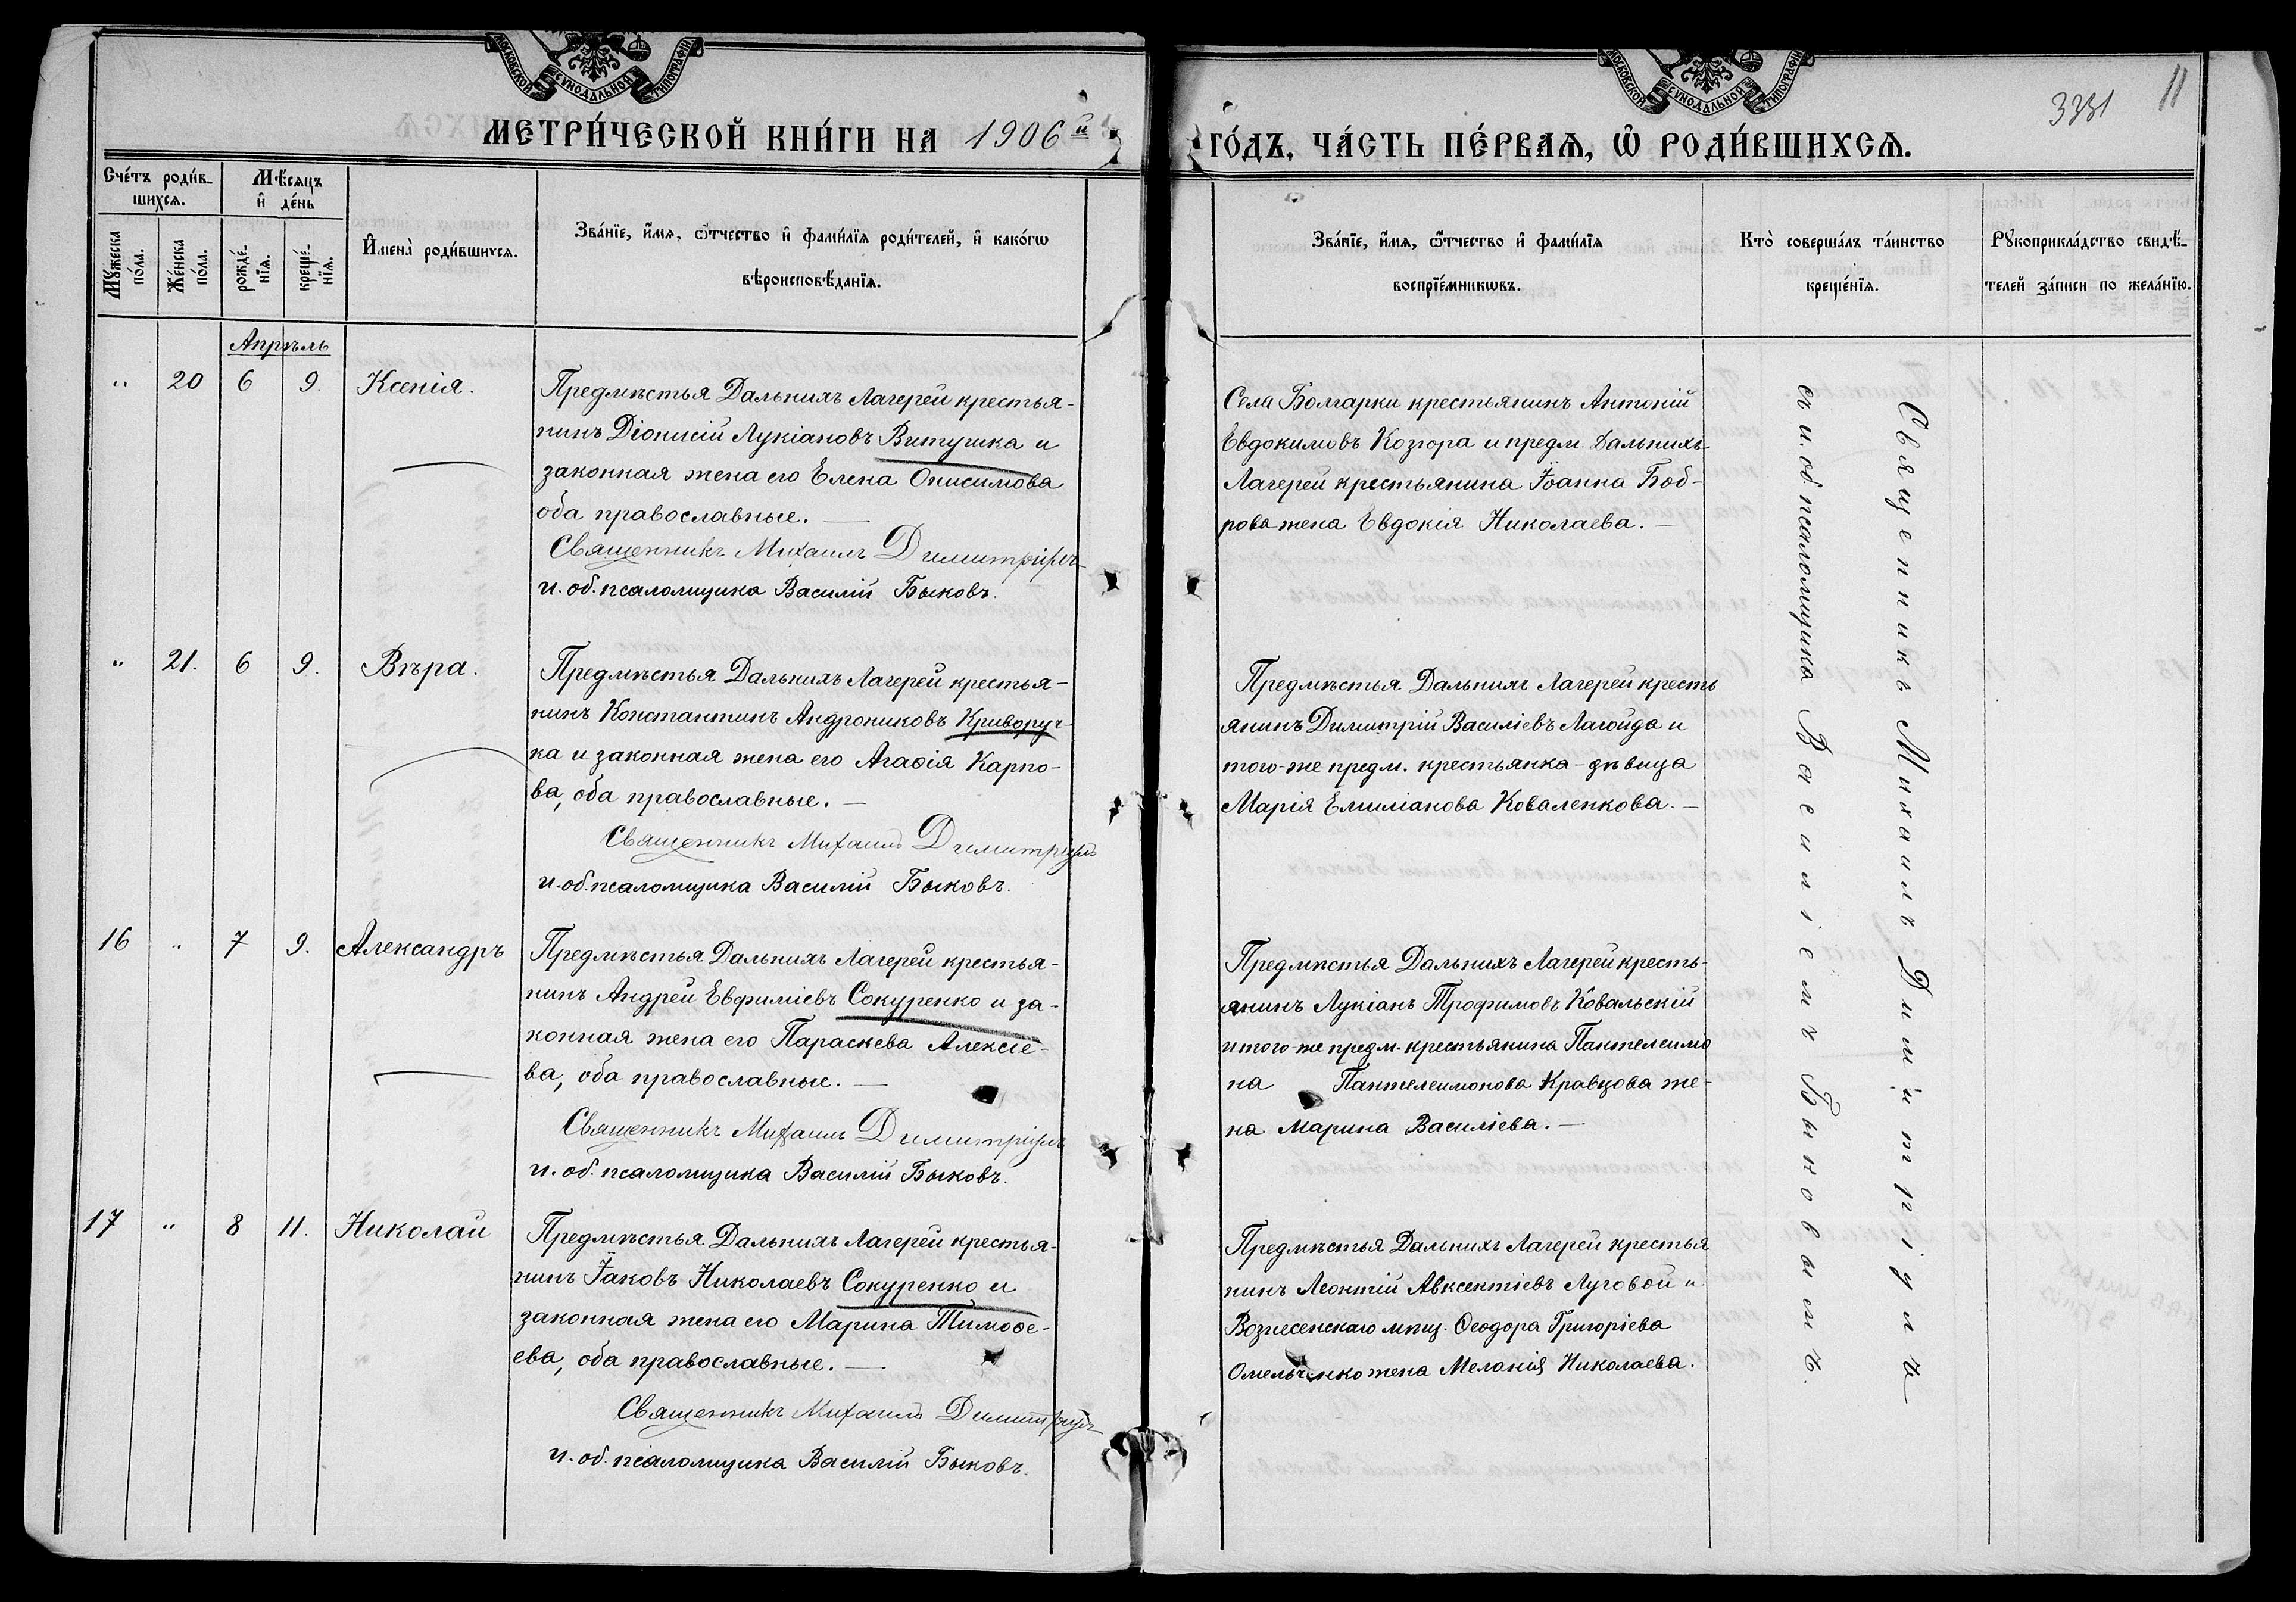 МОСКОВСКОЙ СѴНОДАЛЬНОЙ ТИПОГРАФІИ
МОСКОВСКОЙ СѴНОДАЛЬНОЙ ТИПОГРАФІИ
3331 11
МЕТРИ́ЧЕСКОЙ КНИ́ГИ НА 1906й
ГО́ДЪ, ЧА́СТЬ ПЕ́РВАѦ, Ѡ҆ РОДИ́ВШИХСѦ.
Сче́тъ роди́в-
шихсѧ.
Мꙋ́жеска по́ла.
Же́нска по́ла.
Мѣ́сѧцъ
и҆ де́нь
рожде́-
нїѧ.
креще́-
нїѧ.
И҆мена̀ роди́вшихсѧ.
Зва́нїе, и҆́мѧ, ѻ҆́тчество и҆ фами́лїѧ роди́телей, и҆ како́гѡ
вѣроисповѣ́данїѧ.
Зва́нїе, и҆́мѧ, ѻ҆́тчество и҆ фами́лїѧ
воспрїе́мникѡвъ.
Кто̀ соверша́лъ та́инство
креще́нїѧ.
Рꙋкоприкла́дство свидѣ́-
телей за́писи по жела́нїю.
Апрѣль
" 20 6 9 Ксенія.
Предмѣстья Дальнихъ Лагерей крестья-
нинъ Діонисій Лукіановъ Витушка и
законная жена его Елена Онисимова
оба православные. —
Священникъ Михаилъ Димитріул
и. об. псаломщика Василій Быковъ.
Села Болгарки крестьянинъ Антоній
Евдокимовъ Козюра и предм. Дальнихъ
Лагерей крестьянина Іоанна Боб-
рова жена Евдокія Николаева. —
" 21. 6 9. Вѣра.
Предмѣстья Дальнихъ Лагерей крестья-
нинъ Константинъ Андрониковъ Криворуч-
ка и законная жена его Агаѳія Карпо-
ва, оба православные. —
Священникъ Михаилъ Димитріулъ
и. об. псаломщика Василій Быковъ.
Предмѣстья Дальнихъ Лагерей кресть
янинъ Димитрій Василіевъ Лагойда и
того-же предм. крестьянка-дѣвица
Марія Емиліанова Коваленкова. —
16 " 7 9. Александръ
Предмѣстья Дальнихъ Лагерей крестья-
нинъ Андрей Евфиміевъ Сокуренко и за-
конная жена его Параскева Алексіе-
ва, оба православные. —
Священникъ Михаилъ Димитріулъ
и. об. псаломщика Василій Быковъ.
Предмѣстья Дальнихъ Лагерей кресть-
янинъ Лукіанъ Трофимовъ Ковальскій
и того-же предм. крестьянина Пантелеимо
на Пантелеимонова Кравцова же-
на Марина Василіева. —
17 " 8 11. Николай
Предмѣстья Дальнихъ Лагерей крестья-
нинъ Іаковъ Николаевъ Сокуренко и
законная жена его Марина Тимоѳе-
ева, оба православные. —
Священникъ Михаилъ Димитріулъ
и. об. псаломщика Василій Быковъ.
Предмѣстья Дальнихъ Лагерей крестья
нинъ Леонтій Авксентіевъ Луговой и
Вознесенскаго мѣщ. Ѳеодора Григоріева
Омельченко жена Меланія Николаева.
Священникъ Михаилъ Димитріулъ
съ и. об. псаломщика Василіемъ Быковымъ.